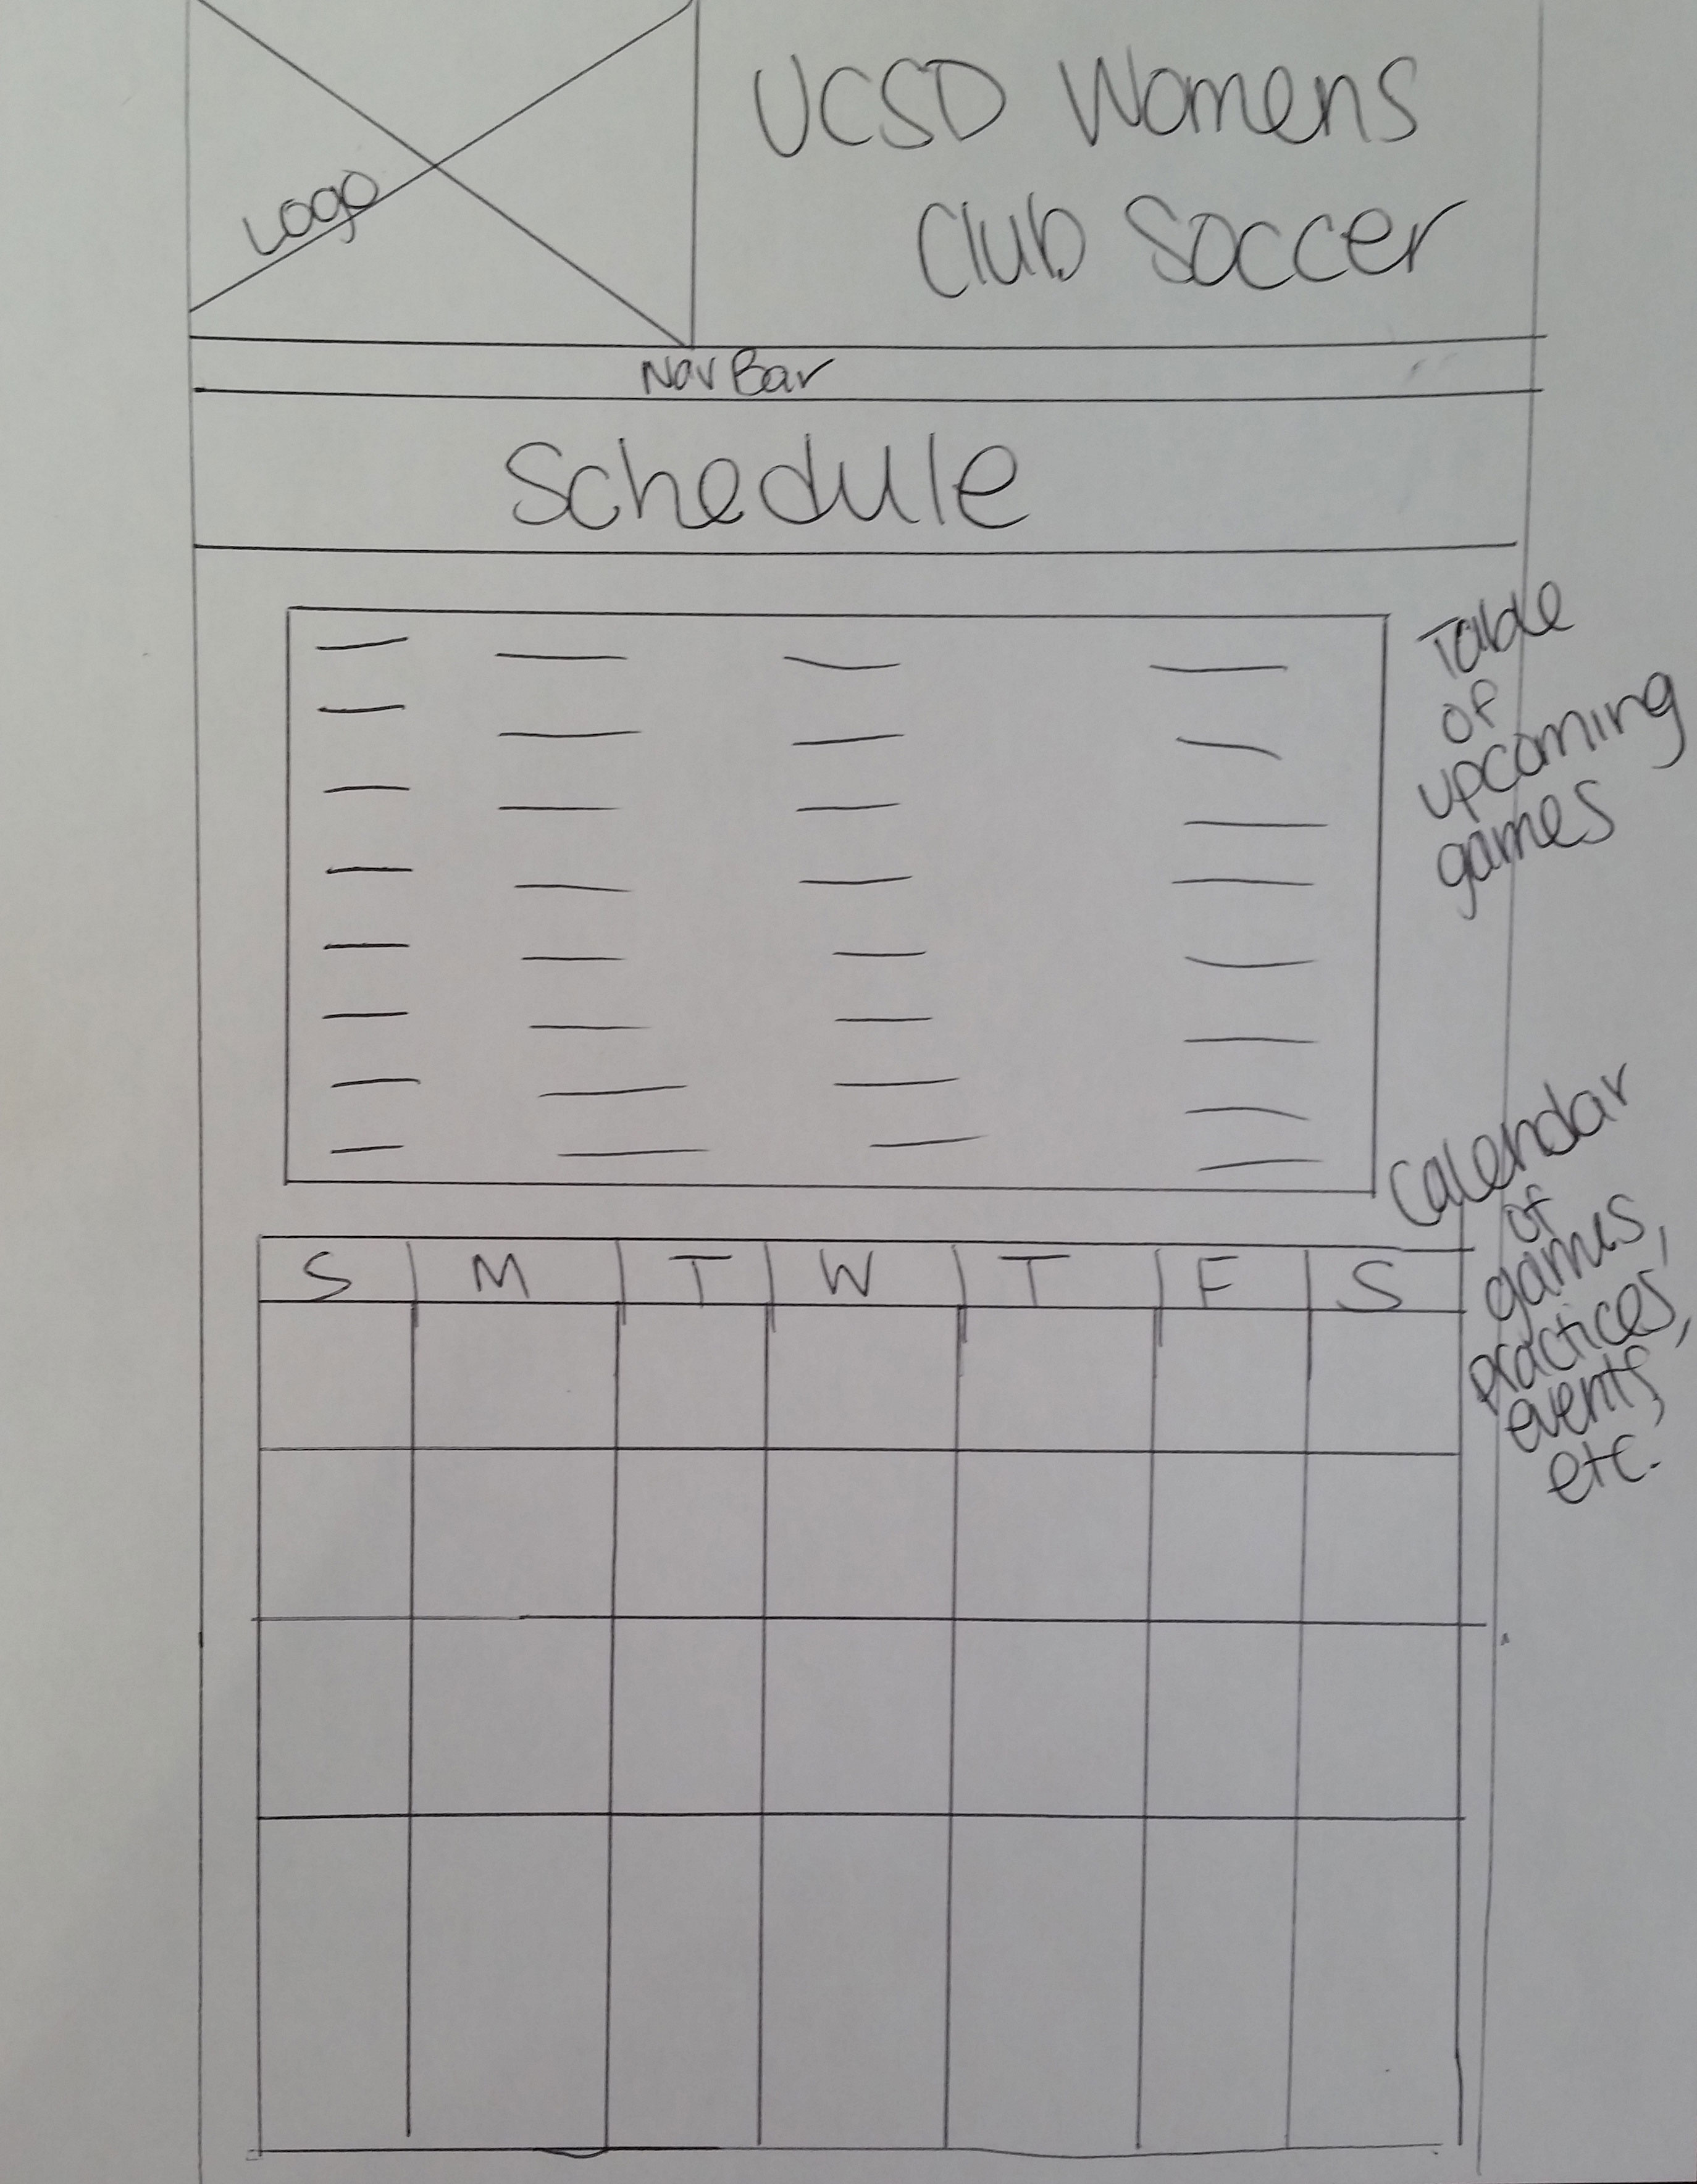 UCSD Womens
Club Soccer
Logo
Nav Bar
Schedule
Table
of
upcoming
games
Calendar
of
games,
practices,
events,
etc.
S M T W T F S